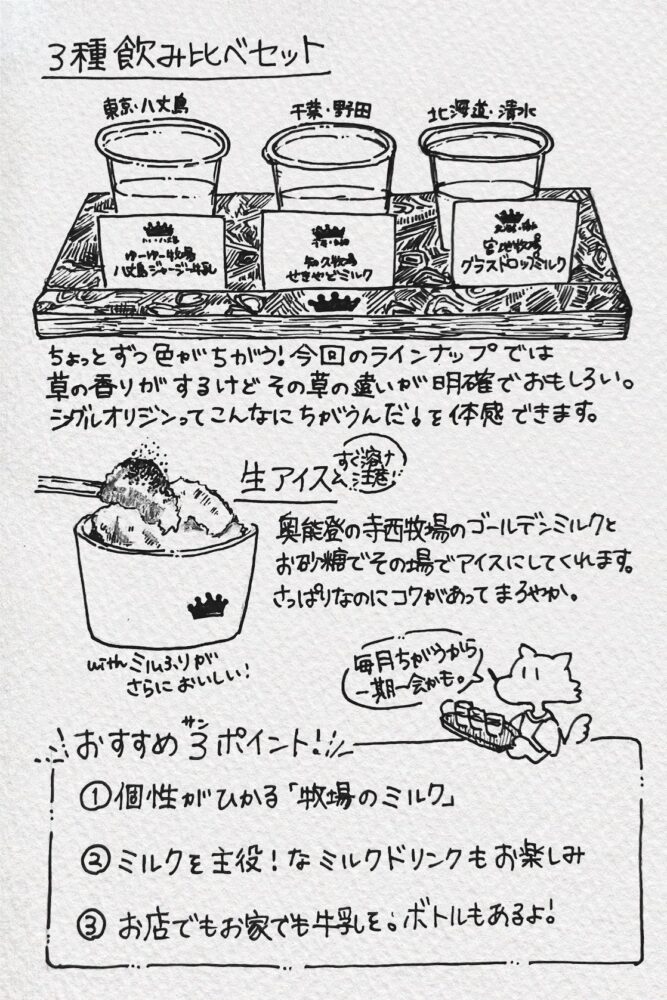 3種飲み比べセット
東京・八丈島
千葉・野田
北海道・清水
ゆーゆー牧場
八丈島ジャージー牛乳
知久牧場
せきやどミルク
宮地牧場
グラスドロップミルク
ちょっとずつ色がちがう！今回のラインナップでは
草の香りがするけどその草の違いが明確でおもしろい。
シングルオリジンってこんなにちがうんだ！を体感できます。
生アイス
すぐ溶け
注意!!
奥能登の寺西牧場のゴールデンミルクと
お砂糖でその場でアイスにしてくれます。
さっぱりなのにコクがあってまろやか。
withミルふりが
さらにおいしい！
毎月ちがうから
一期一会かも。
サン
おすすめ3ポイント！
①個性がひかる「牧場のミルク」
②ミルクを主役！なミルクドリンクもお楽しみ
③お店でもお家でも牛乳を。ボトルもあるよ！